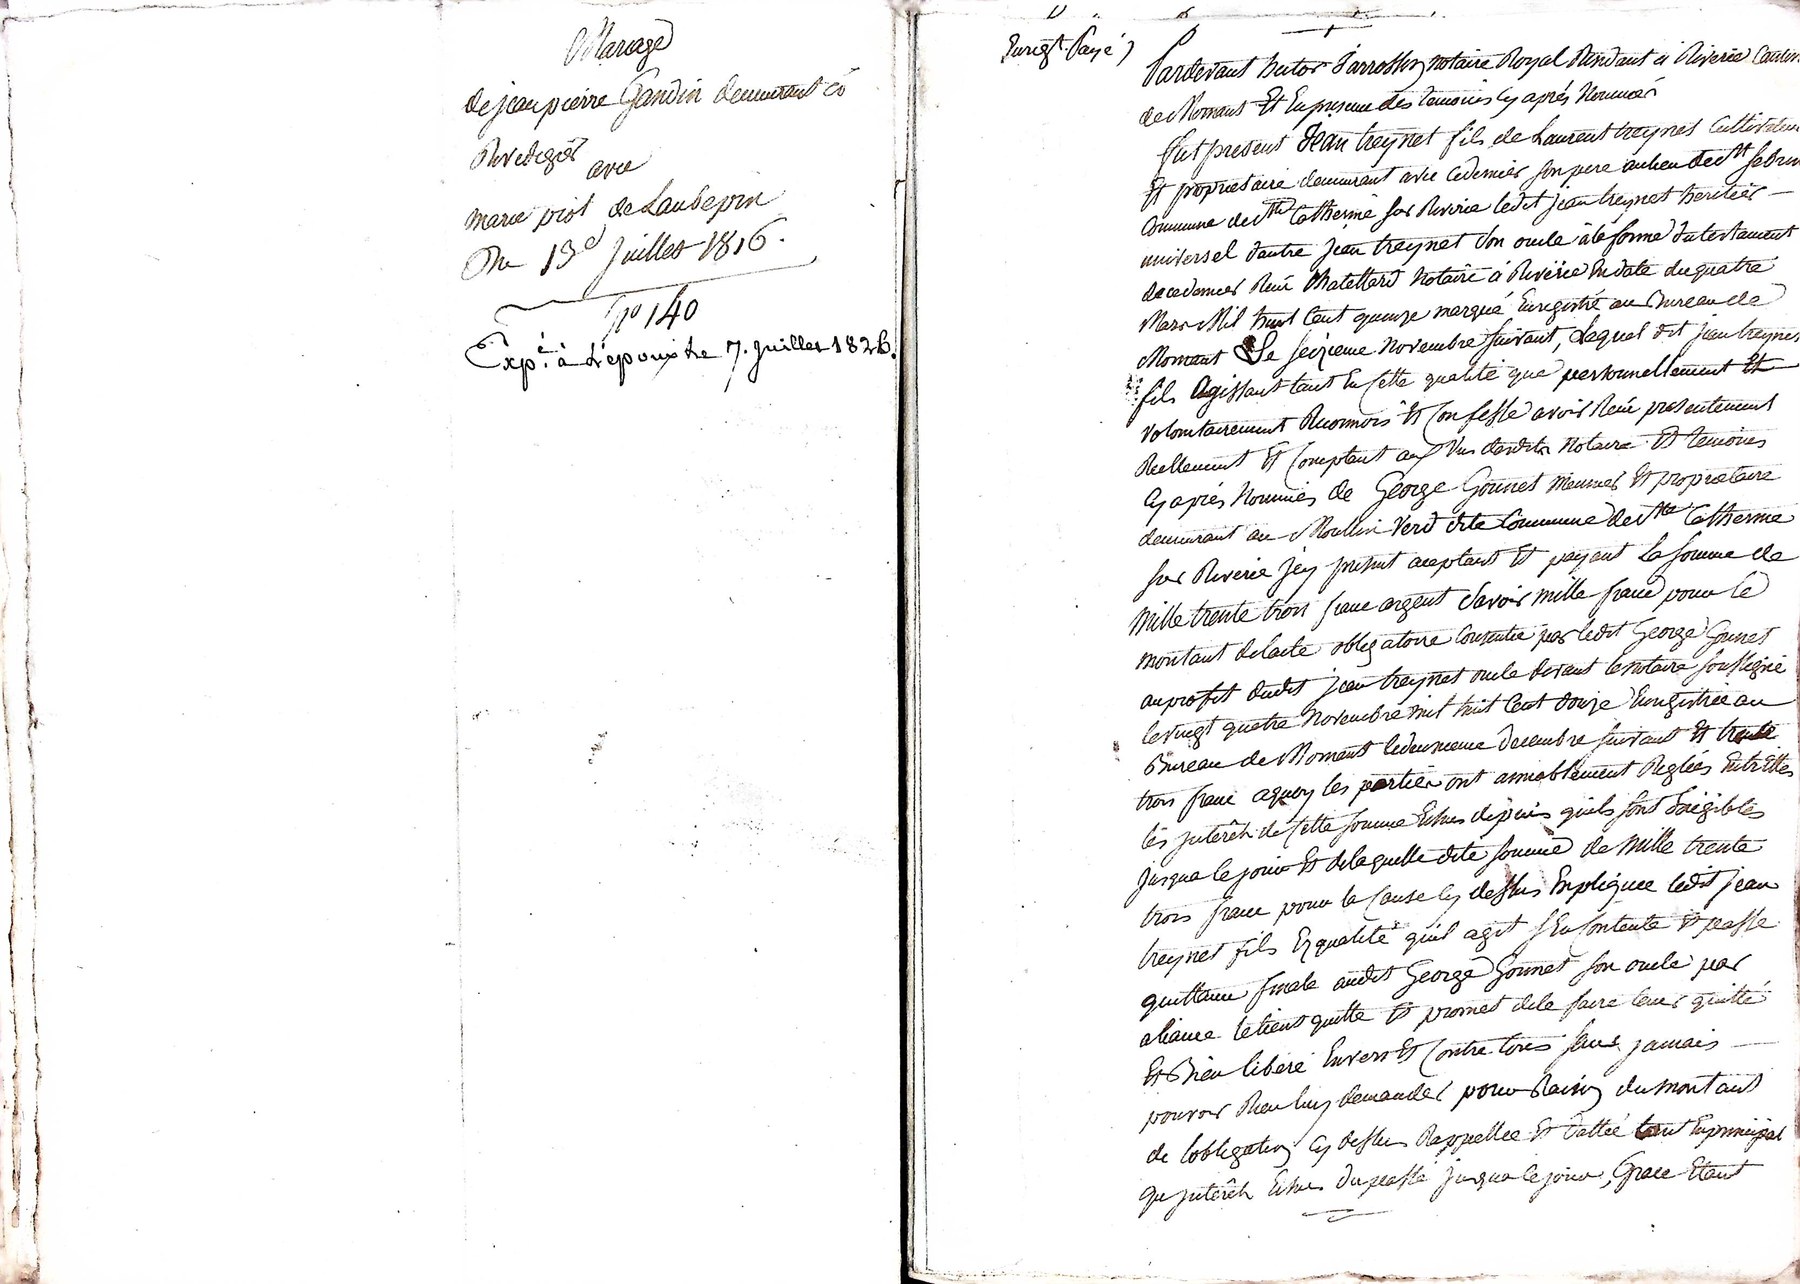 Mariage
de jean pierre Gandin demeurant à
Rivedegier
avec
marie piot de Laubepin
Du 13e Juillet 1816.
No 140
Expé. à l'epoux le 7. Juillet 1826.
Enregt. Payé
Pardevant hector Parrossin notaire Royal Residant à Riverie Canton
de Mornant Et En presence des temoins cy après Nommés
fut present Jean treynet fils de Laurent treynet Cultivateur
Et proprietaire demeurant avec cedernier son pere aulieu de
Commune de Ste Catherine sur Riverie ledit jean treynet heritier
universel d'autre jean treynet son oncle à la forme du testament
de cedernier Reçu Chatellard Notaire à Riverie En date du quatre
Mars Mil huit Cent quinze marqué Enregistré au Bureau de
Mornant Le seizieme Novembre suivant, Lequel dit jean treynet
fils Agissant tant En Cette qualité que personnellement Et
volontairement Reconnois Et Confesse avoir Reçu presentement
Reellement Et Comptant au Vus desdits Notaire Et temoins
Cy après Nommés de George Gonnet Meunier Et proprietaire
demeurant au Moullin Verd dite Commune de Ste Catherine
sur Riverie Jcy present aceptant Et payant La somme de
Mille trente trois franc argent Savoir mille franc pour le
montant de lacte obligatoire Consentie par ledit George Gonnet
au profit dudit jean treynet oncle devant le notaire soussigné
le vingt quatre Novembre mil huit Cent douze Enregistrée au
Bureau de Mornant le deuxieme decembre suivant Et trente
trois franc aquoy les parties ont amiablement Reglées Entr'Elles
les jnterêts de Cette somme Echus depuis quils sont Exigibles
jusqua ce jour Et de laquelle dite somme de Mille trente
trois franc pour la Cause Cy dessus Expliquée ledit jean
treynet fils Ezqualité quil agit sEn Contente Et passe
quittance finale audit George Gonnet son oncle par
aliance le tient quitte Et promet de le faire tenir quitte
Et Bien liberé Envers Et Contre tous sans jamais
pouvoir Rien luy demander pour Raison du montant
de l'obligation Cy dessus Rappellée Et dattée tant En principal
qu jnterêts Echus du passé jusqua ce jour, Grace Etant